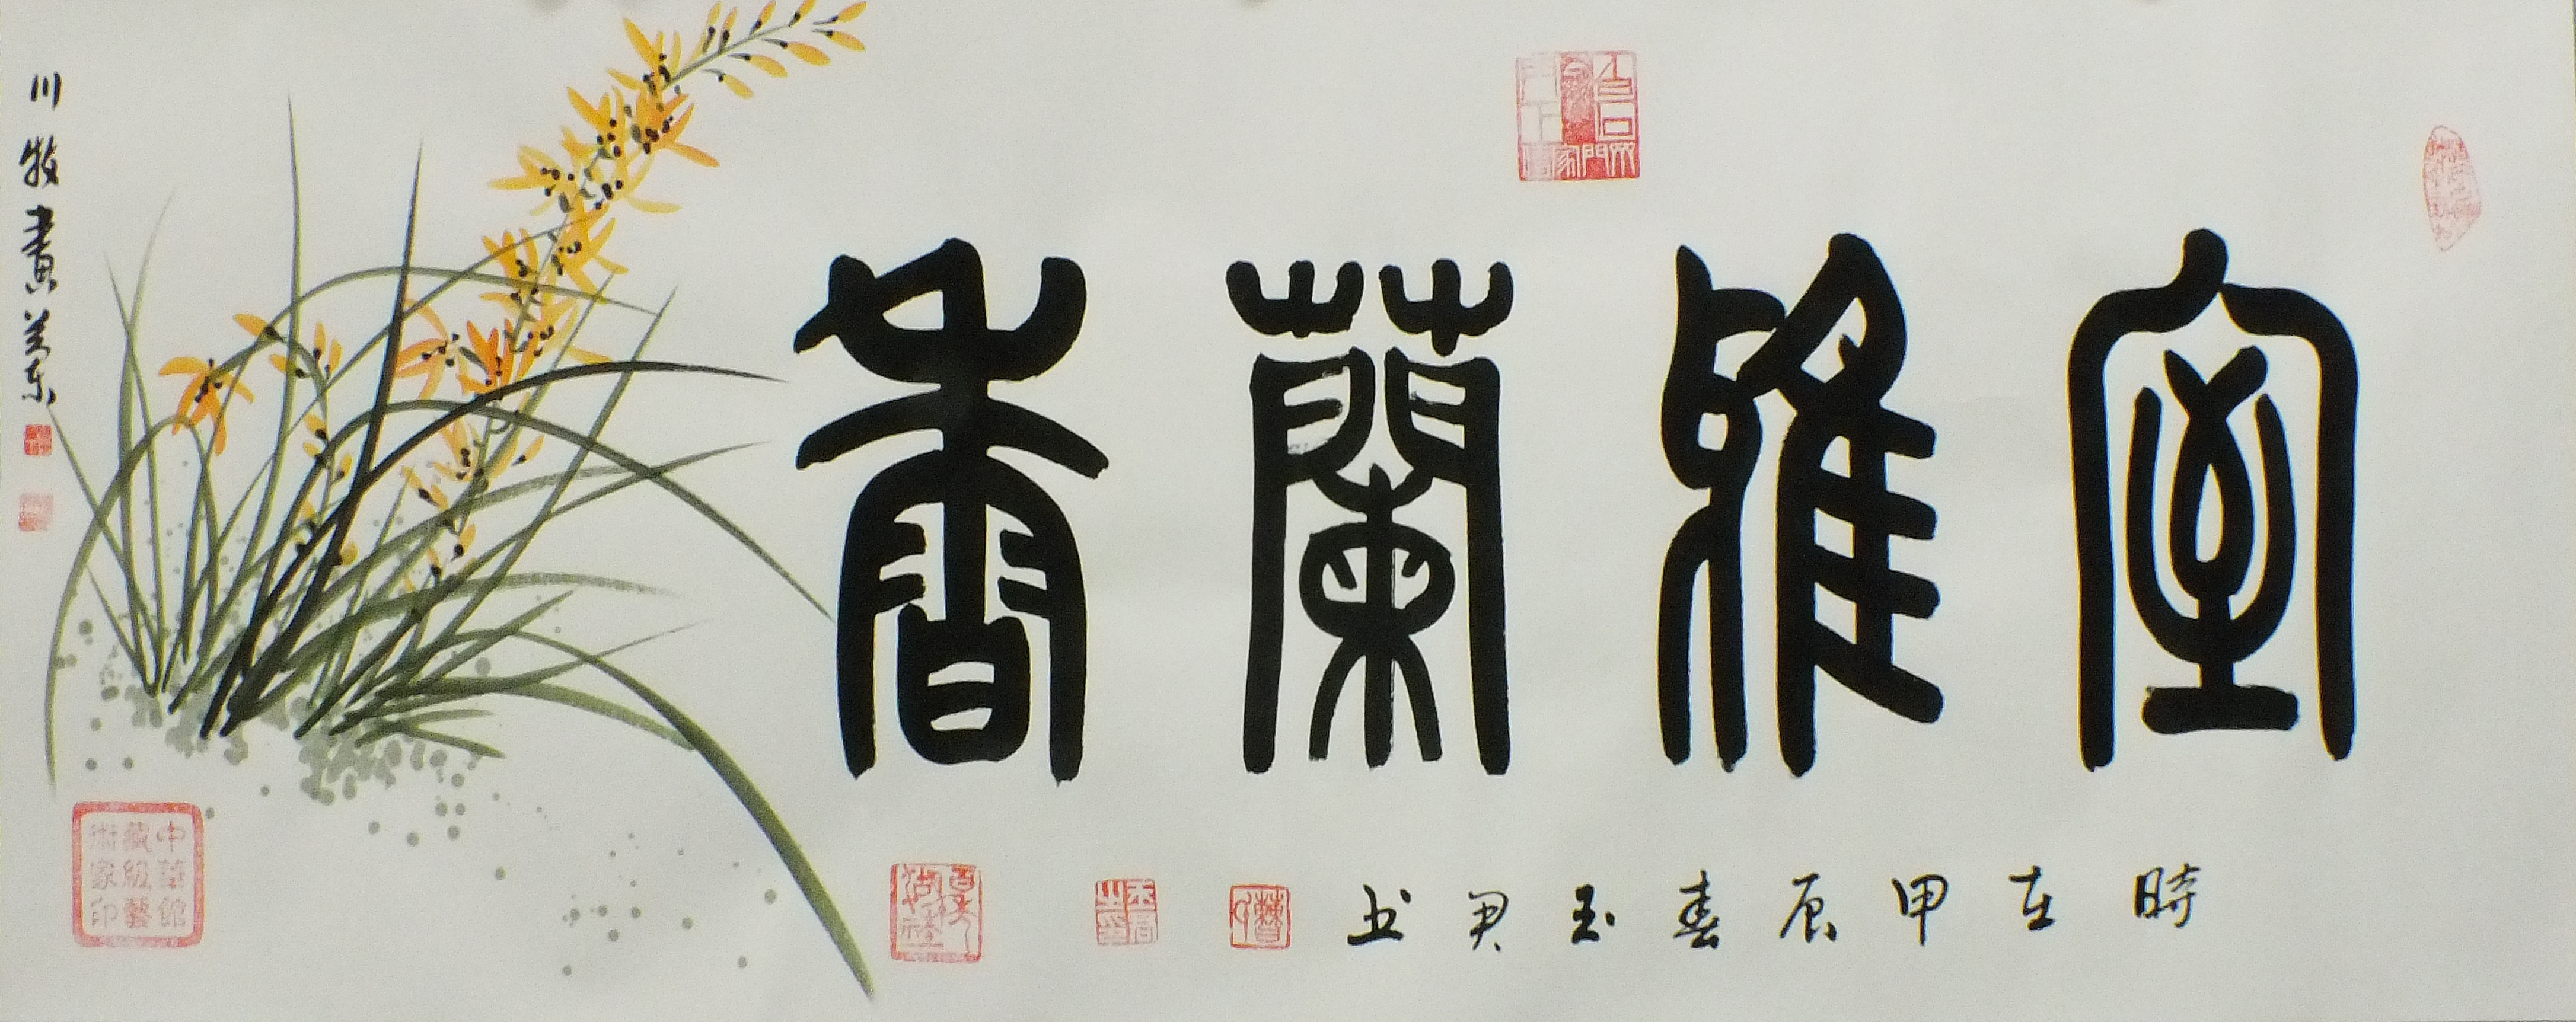 室雅蘭香
時在甲辰春玉尹书
川牧畫兰東
中華館藏級藝術家印